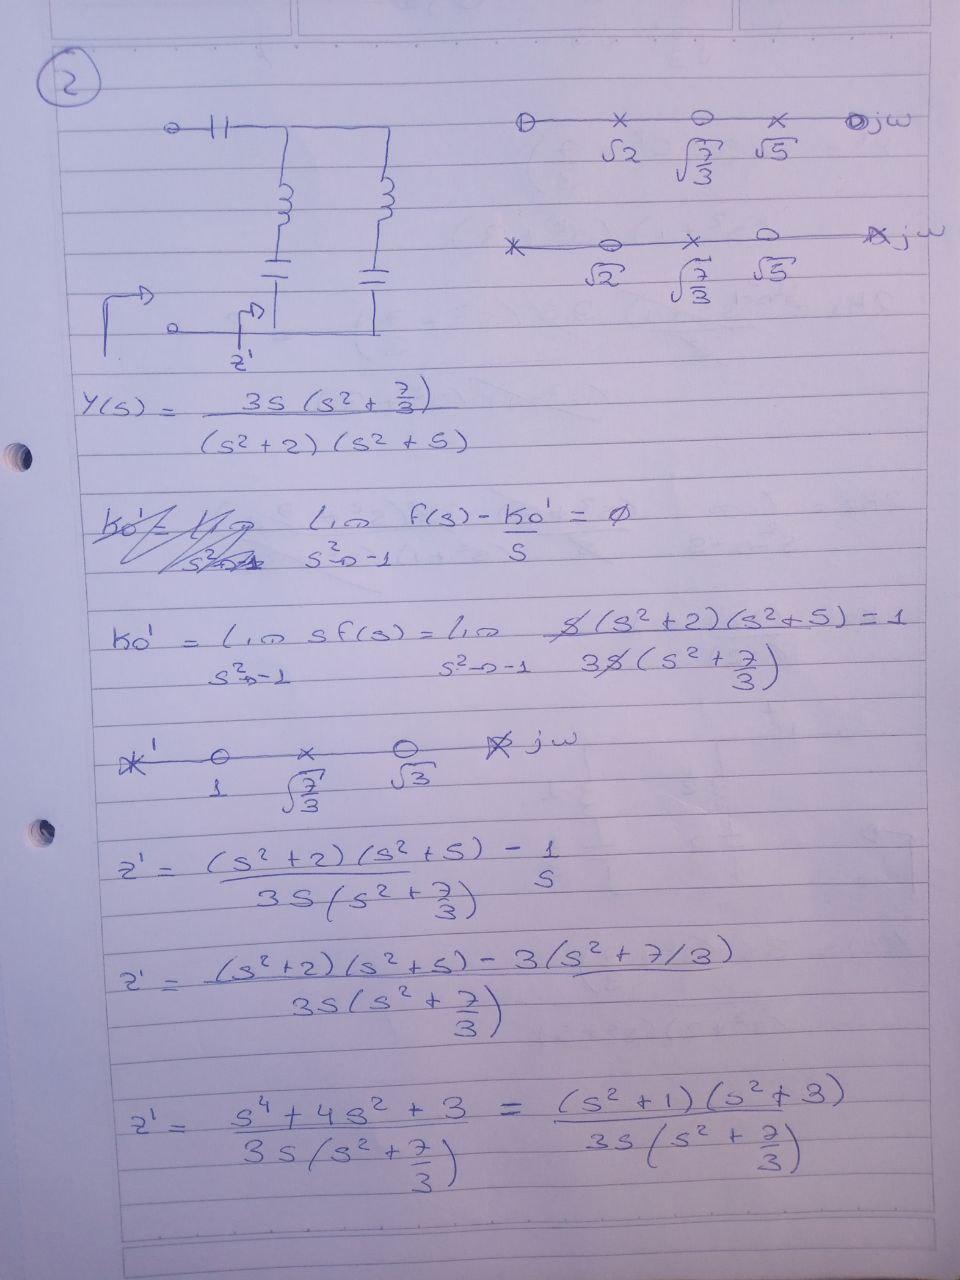 2
jω
√2 √(7/3) √5
jω
√2 √(7/3) √5
z'
Y(s) = 3s (s² + 7/3) / (s² + 2) (s² + 5)
lim s²→-1 f(s) - ko'/s = ∅
ko' = lim s²→-1 s f(s) = lim s²→-1 s(s² + 2)(s² + 5) / 3s(s² + 7/3) = 1
jω
1 √(7/3) √3
z' = (s² + 2)(s² + 5) / 3s(s² + 7/3) - 1/s
z' = (s² + 2)(s² + 5) - 3(s² + 7/3) / 3s(s² + 7/3)
z' = s⁴ + 4s² + 3 / 3s(s² + 7/3) = (s² + 1)(s² + 3) / 3s(s² + 7/3)